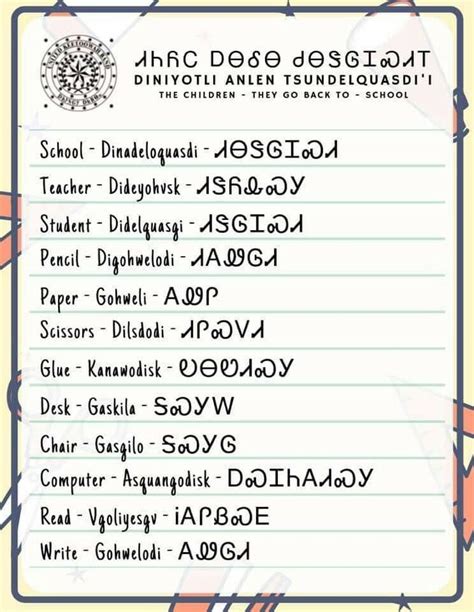 ᏗᏂᏲᏟ ᎠᎾᎴᎾ ᏧᎾᏕᎶᏆᏍᏗᎢ
DINIYOTLI ANLEN TSUNDELQUASDI'I
THE CHILDREN - THEY GO BACK TO - SCHOOL
School - Dinadeloquasdi - ᏗᎾᏕᎶᏆᏍᏗ
Teacher - Dideyohvsk - ᏗᏕᏲᎲᏍᎩ
Student - Didelquasgi - ᏗᏕᎶᏆᏍᏗ
Pencil - Digohwelodi - ᏗᎪᏪᎶᏗ
Paper - Gohweli - ᎪᏪᎵ
Scissors - Dilsdodi - ᏗᎵᏍᏙᏗ
Glue - Kanawodisk - ᎧᎾᏬᏗᏍᎩ
Desk - Gaskila - ᎦᏍᎩᎳ
Chair - Gasgilo - ᎦᏍᎩᎶ
Computer - Asquangodisk - ᎠᏍᏆᏂᎪᏗᏍᎩ
Read - Vgoliyesgv - ᎥᎪᎵᏰᏍᎬ
Write - Gohwelodi - ᎪᏪᎶᏗ